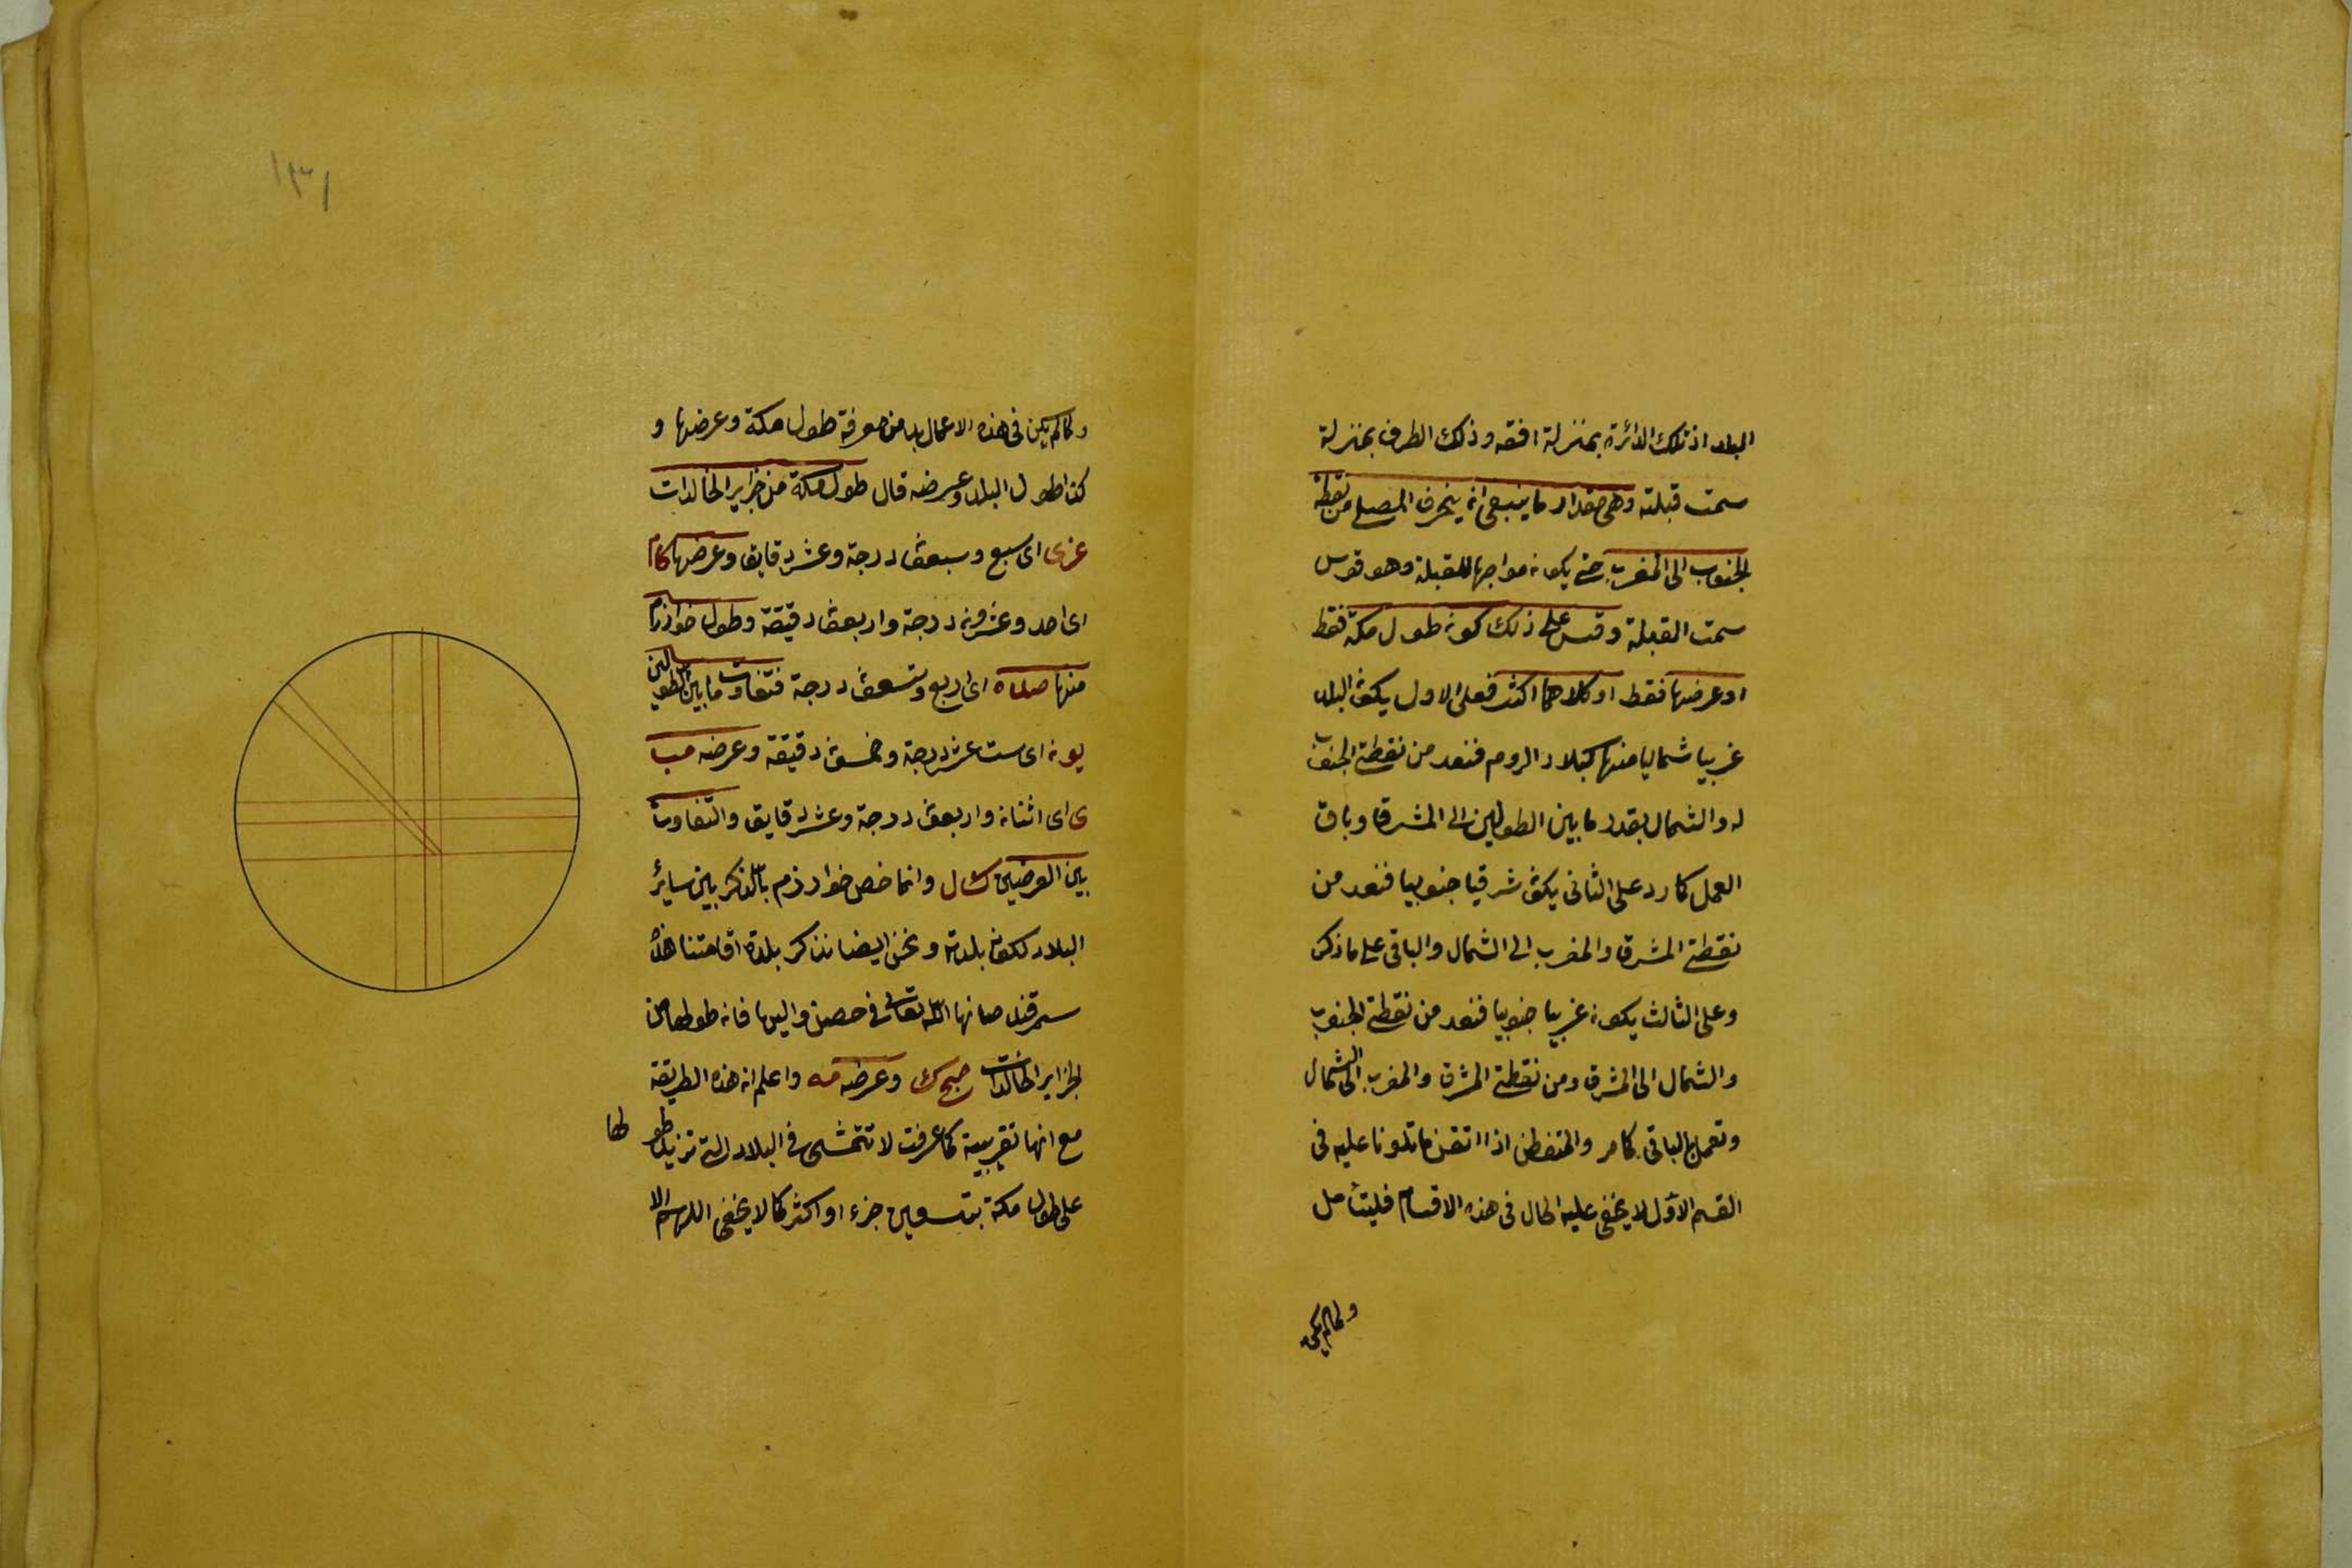 البلد اذ تلك الدائرة بمنزلة افقه وذلك الطرف بمنزلة
سمت قبلته وهى مقدار ما ينبغى ان ينحرف المصلى من نقطة
الجنوب الى المغرب حتى يكون مواجها للقبلة وهو قوس
سمت القبلة وقس على ذلك كون طول مكة فقط
او عرضها فقط او كلاهما اكثر فعلى الاول يكون البلد
غربيا شماليا منها كبلاد الروم فنعد من نقطتى الجنوب
له والشمال بقدر ما بين الطولين الى المشرق وباقى
العمل كما ر د على الثانى يكون شرقيا جنوبيا فنعد من
نقطتى المشرق والمغرب الى الشمال والباقى على ما ذكر
وعلى الثالث يكون غربيا جنوبيا فنعد من نقطتى الجنوب
والشمال الى المشرق ومن نقطتى المشرق والمغرب الى الشمال
وتعمل الباقى كما مر والمتفطن اذا اتقن ما تلونا عليه فى
القسم الاول لا يخفى عليه الحال فى هذه الاقسام فليتأمل
ولما لم يكن
١٣١
ولما لم يكن فى هذه الاعمال بد من معرفة طول مكة وعرضها و
كذا طول البلد وعرضه قال طول مكة من جزاير الخالدات
عزى اى سبع وسبعون درجة وعشر دقايق وعرضها كام
اى احد وعشرون درجة واربعون دقيقة وطول خوارزم
منها صلده اى اربع وتسعون درجة فتفاوت ما بين الطولين
يون اى ست عشر درجة وخمسون دقيقة وعرضه مب
ى اى اثنان واربعون درجة وعشر دقايق والتفاوت
بين العرضين ك ل وانما خص خوارزم بالذكر بين سائر
البلاد لكونه بلدته ونحن ايضا نذكر بلدة اقامتنا هذه
سمرقند صانها الله تعالى فى حصن واليها فان طولها من
الجزاير الخالدات صح ك وعرضه مه واعلم ان هذه الطريقة
مع انها تقريبية كما عرفت لا تتمشى فى البلاد التى تزيد طو لها
على طول مكة بتسعين جزء او اكثر كما لا يخفى اللهم الا